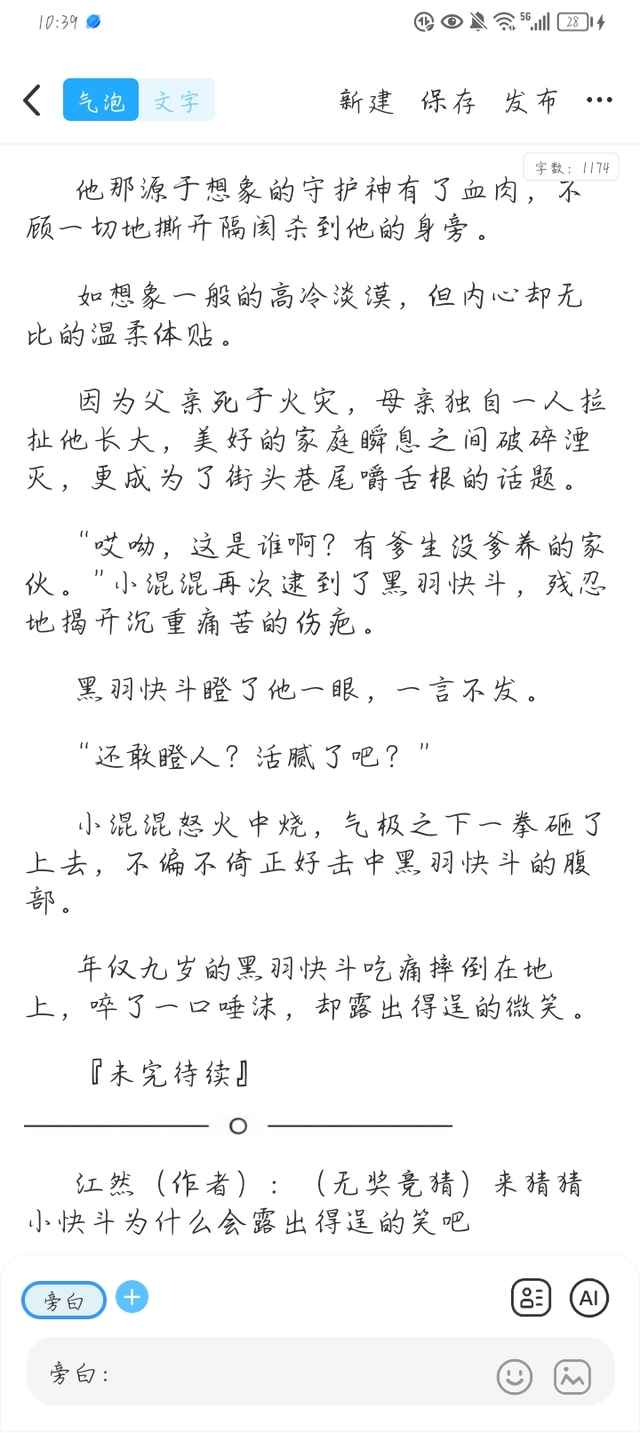 10:39
5G
28
气泡
文字
新建
保存
发布
字数：1174
他那源于想象的守护神有了血肉，不
顾一切地撕开隔阂杀到他的身旁。
如想象一般的高冷淡漠，但内心却无
比的温柔体贴。
因为父亲死于火灾，母亲独自一人拉
扯他长大，美好的家庭瞬息之间破碎湮
灭，更成为了街头巷尾嚼舌根的话题。
“哎呦，这是谁啊？有爹生没爹养的家
伙。”小混混再次逮到了黑羽快斗，残忍
地揭开沉重痛苦的伤疤。
黑羽快斗瞪了他一眼，一言不发。
“还敢瞪人？活腻了吧？”
小混混怒火中烧，气极之下一拳砸了
上去，不偏不倚正好击中黑羽快斗的腹
部。
年仅九岁的黑羽快斗吃痛摔倒在地
上，啐了一口唾沫，却露出得逞的微笑。
『未完待续』
江然（作者）：（无奖竞猜）来猜猜
小快斗为什么会露出得逞的笑吧
旁白
AI
旁白：